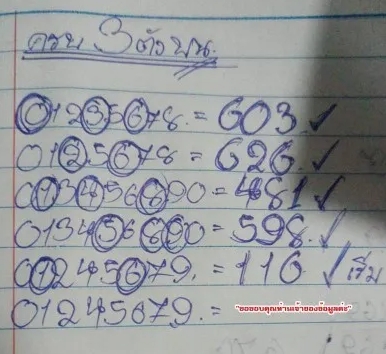 ครบ 3 ตัวบน
01235678. = 603. ✓
0125678 = 626. ✓
013456890 = 481 ✓
013456890 = 598. ✓
01245679. = 116. ✓ เริ่ม
01245679. =
"ขอขอบคุณท่านเจ้าของข้อมูลค่ะ"